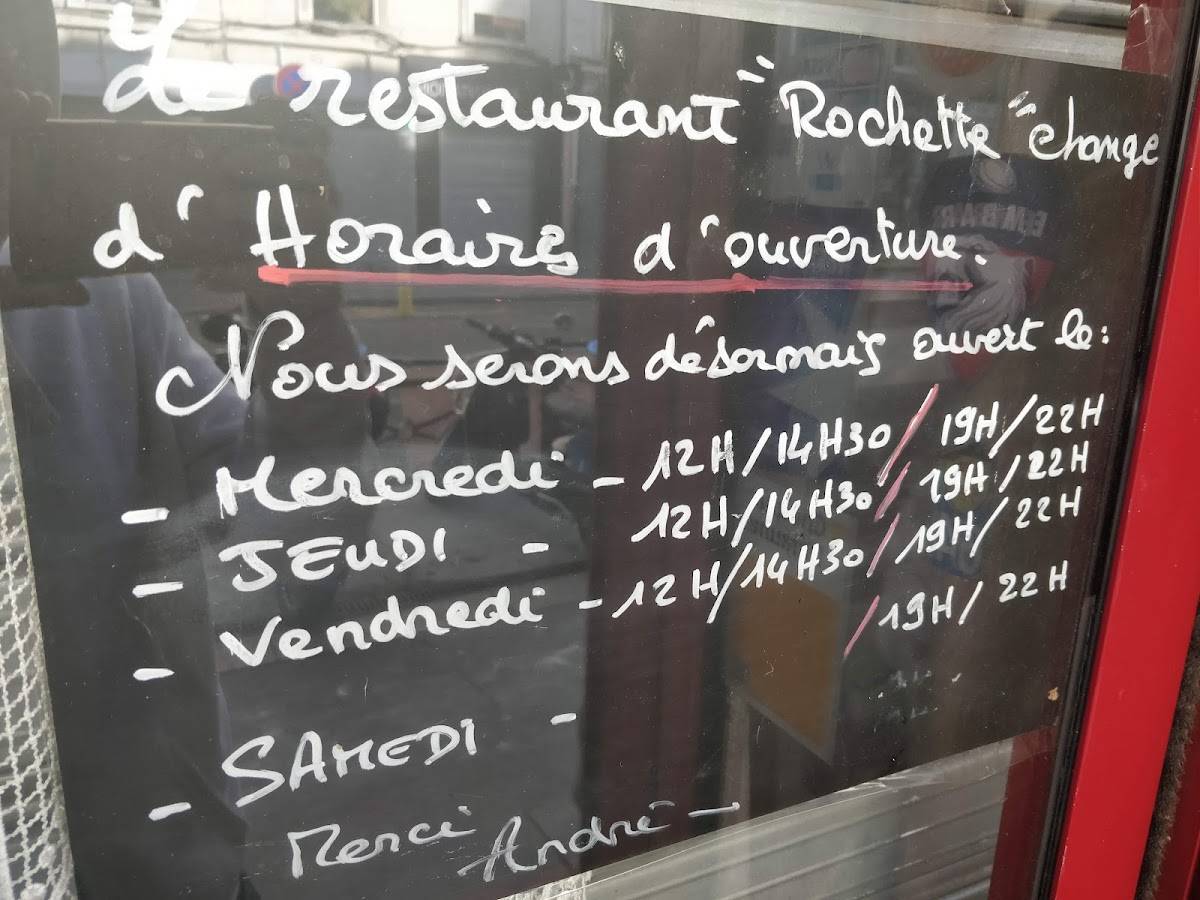 Le restaurant "Rochette" change
d'Horaires d'ouverture.
Nous serons désormais ouvert le:
- Mercredi - 12H/14H30 / 19H/22H
- JEUDI - 12H/14H30 / 19H/22H
- Vendredi - 12H/14H30 / 19H/22H
- SAMEDI - / 19H/22H
Merci André